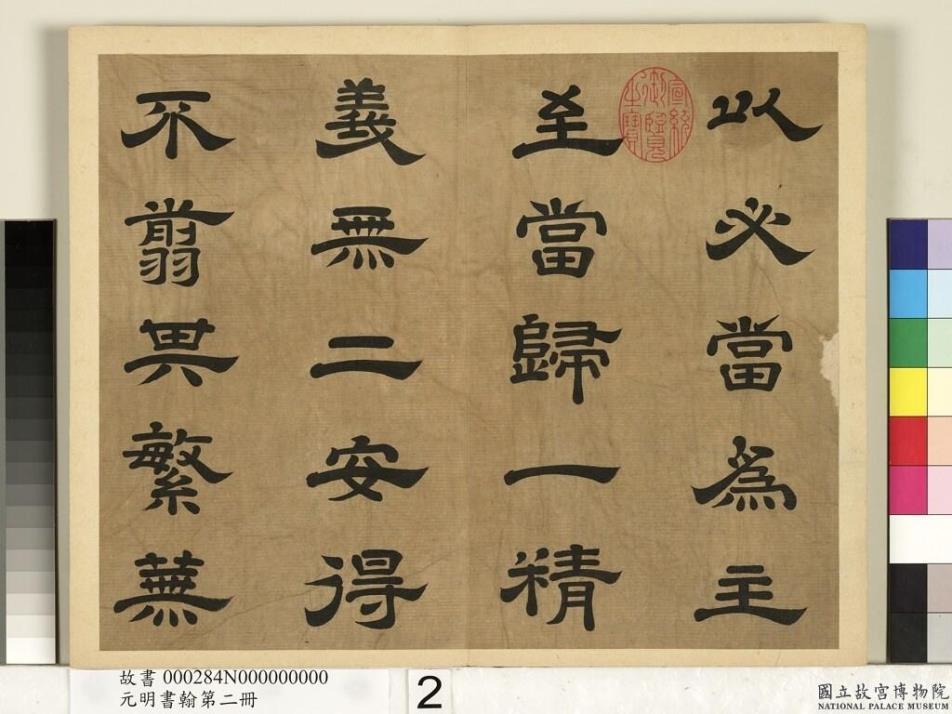 以必當為主
至當歸一精
義無二安得
不翦其繁蕪
宣統御覽之寶
故書 000284N000000000
元明書翰第二冊
2
國立故宮博物院
NATIONAL PALACE MUSEUM